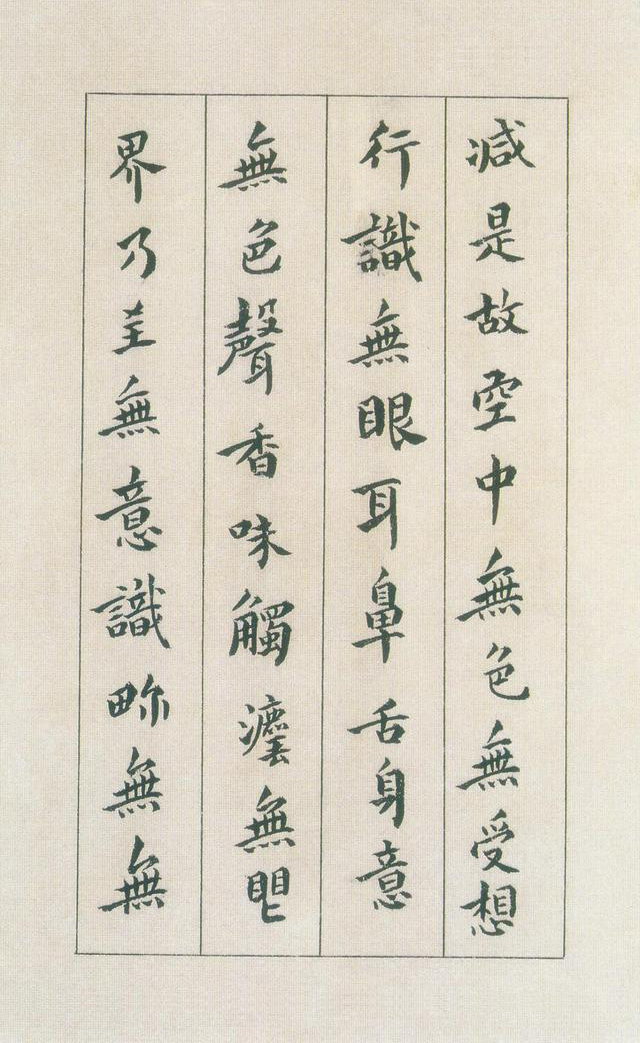 減是故空中無色無受想
行識無眼耳鼻舌身意
無色聲香味觸灋無
界乃至無意識畍無無